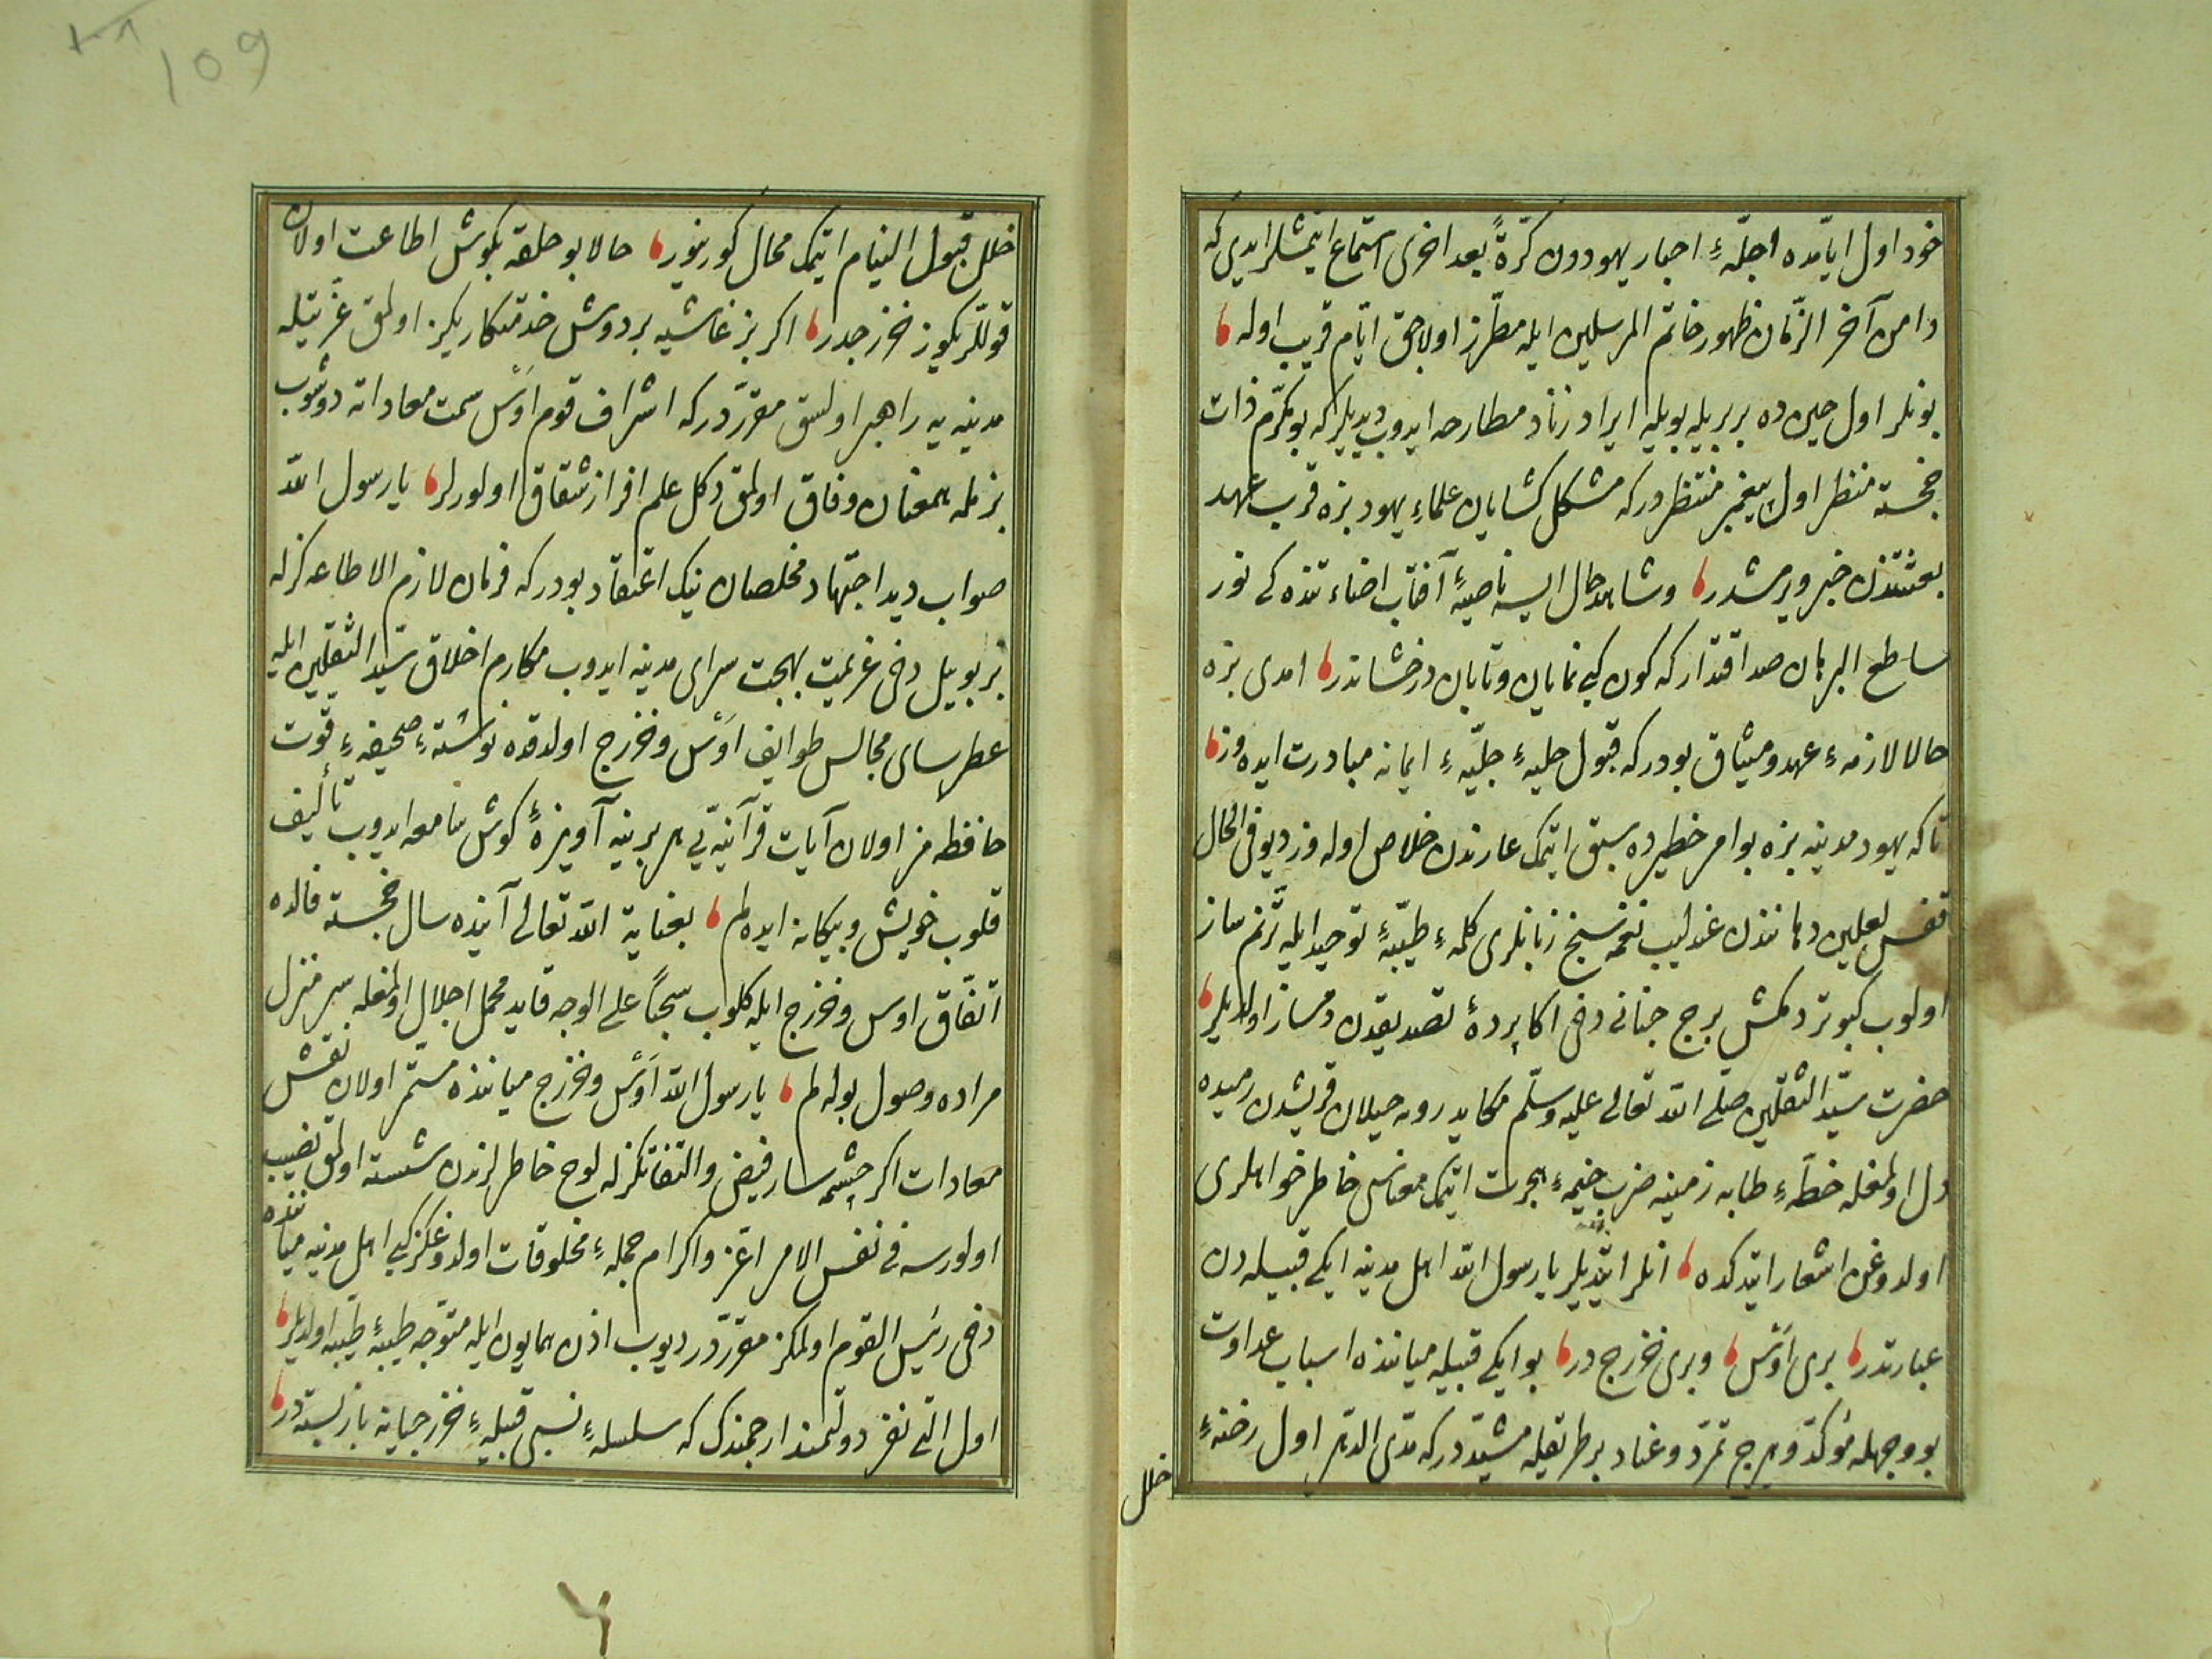 خود اول ایامده اجلّهٔ احبار یهوددن کرّةً بعد اخری استماع ایتمشلر ایدی که
دامن آخر الزّمان ظهور خاتم المرسلین ایله مطرّز اولاجق ایّام قریب اوله
بونلر اول حین ده بربریله بویله ایراد زناد مطارحه ایدوب دیدیلر که بو مکرّم ذات
خجسته منظر اول پیغمبر منتظر درکه مشکل کشایان علماء یهود بزه قرب عهد
بعثتندن خبر ویرمشدر و شاهد حال ایسه ناصیهٔ آفتاب اضاءتنده کی نور
ساطع البرهان صداقتدار که کون کبی نمایان و تابان و درخشاندر امدی بزه
حالا لازمهٔ عهد و میثاق بودر که قبول حلیهٔ جلیّهٔ ایمانه مبادرت ایده وز
تا که یهود مدینه بزه بو امر خطیرده سبق ایتمک عارندن خلاص اوله وز دیو فی الحال
قفس لعلین دهانندن عندلیب نغمه سنج زبانلری کلمهٔ طیّبهٔ توحید ایله ترنّم ساز
اولوب کبوتر دلکش برج جنانی دخی اکا پردهٔ تصدیقدن دمساز اولدیلر
حضرت سیّد الثقلین صلّی الله تعالی علیه وسلّم مکاید روبه حیلان قریشدن رمیده
دل اولمغله خطّهٔ طابه زمینه ضرب خیمهٔ هجرت ایتمک معنای خاطر خواهلری
اولدوغن اشعار ایتدکده انلر ایتدیلر یا رسول الله اهل مدینه ایکی قبیله دن
عبارتدر بری اَوْس و بری خزرج در بو ایکی قبیله میاننده اسباب عداوت
بو وجهله مؤکّد و برج تمرّد و عناد بر طریقله مشیّد درکه مدی الدّهر اول رخنهٔ
خلل
خلل قبول التیام ایتمک محال کورینور حالا بو حلقه بکوش اطاعت اولان
قوللریکوز خزرجدر اکر بز غاشیه بردوش خدمتکاریکز اولمق عزّتیله
مدینه یه راهبر اولسق مقرّر درکه اشراف قوم اَوْس سمت معاداته دوشوب
بزمله همعنان وفاق اولمق دکل علم افراز شقاق اولورلر یا رسول الله
صواب دید اجتهاد مخلصان نیک اعتقاد بودر که فرمان لازم الاطاعه کزله
بز بو ییل دخی عزیمت بهجت سرای مدینه ایدوب مکارم اخلاق سیّد الثقلین ایله
عطرسای مجالس طوایف اَوْس و خزرج اولدقده نوشتهٔ صحیفهٔ قوت
حافظه مز اولان آیات قرآنیّه یی هر برینه آویزهٔ کوش سامعه ایدوب تألیف
قلوب خویش و بیکانه ایده لم بعنایة الله تعالی آینده سال خجسته فالده
اتّفاق اوس و خزرج ایله کلوب سحبًا علی الوجه قاید محمل اجلال اولمغله سر منزل
مراده وصول بوله لم یا رسول الله اَوْس و خزرج میاننده مستمر اولان نقش
معادات اکر چشمه سار فیض و التفاتکزله لوح خاطرلرندن شسته اولمق نصیب
اولورسه فی نفس الامر اعزّ و اکرام جملهٔ مخلوقات اولدوغکز کبی اهل مدینه میاننده
دخی رئیس القوم اولمکز مقرّر در دیوب اذن همایون ایله متوجّه طیبهٔ طیّبه اولدیلر
اول التی نفر دولتمند ارجمندک که سلسلهٔ نسبی قبیلهٔ خزرجیانه بازبسته در
109